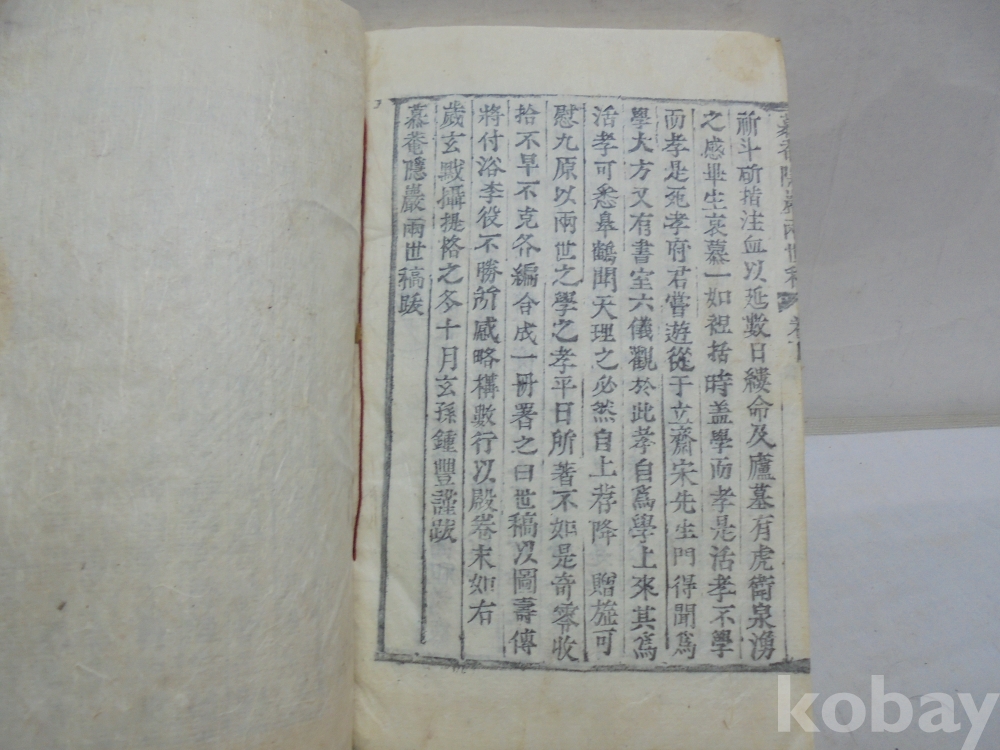 慕菴隱巖兩世稿 卷
祈斗斫指注血以延數日縷命及廬墓有虎衛泉湧
之感畢生哀慕一如袒括時盖學而孝是活孝不學
而孝是死孝府君嘗遊從于立齋宋先生門得聞爲
學大方又有書室六儀觀於此孝自爲學上來其爲
活孝可悉皋鶴聞天理之必然自上荐降 贈旌可
慰九原以兩世之學之孝平日所著不如是奇零收
拾不早不克各編合成一冊署之曰世稿以圖壽傳
將付浴李役不勝所感略構數行以殿卷末如右
歲玄黓攝提格之冬十月玄孫鍾豐謹跋
慕菴隱巖兩世稿跋
kobay